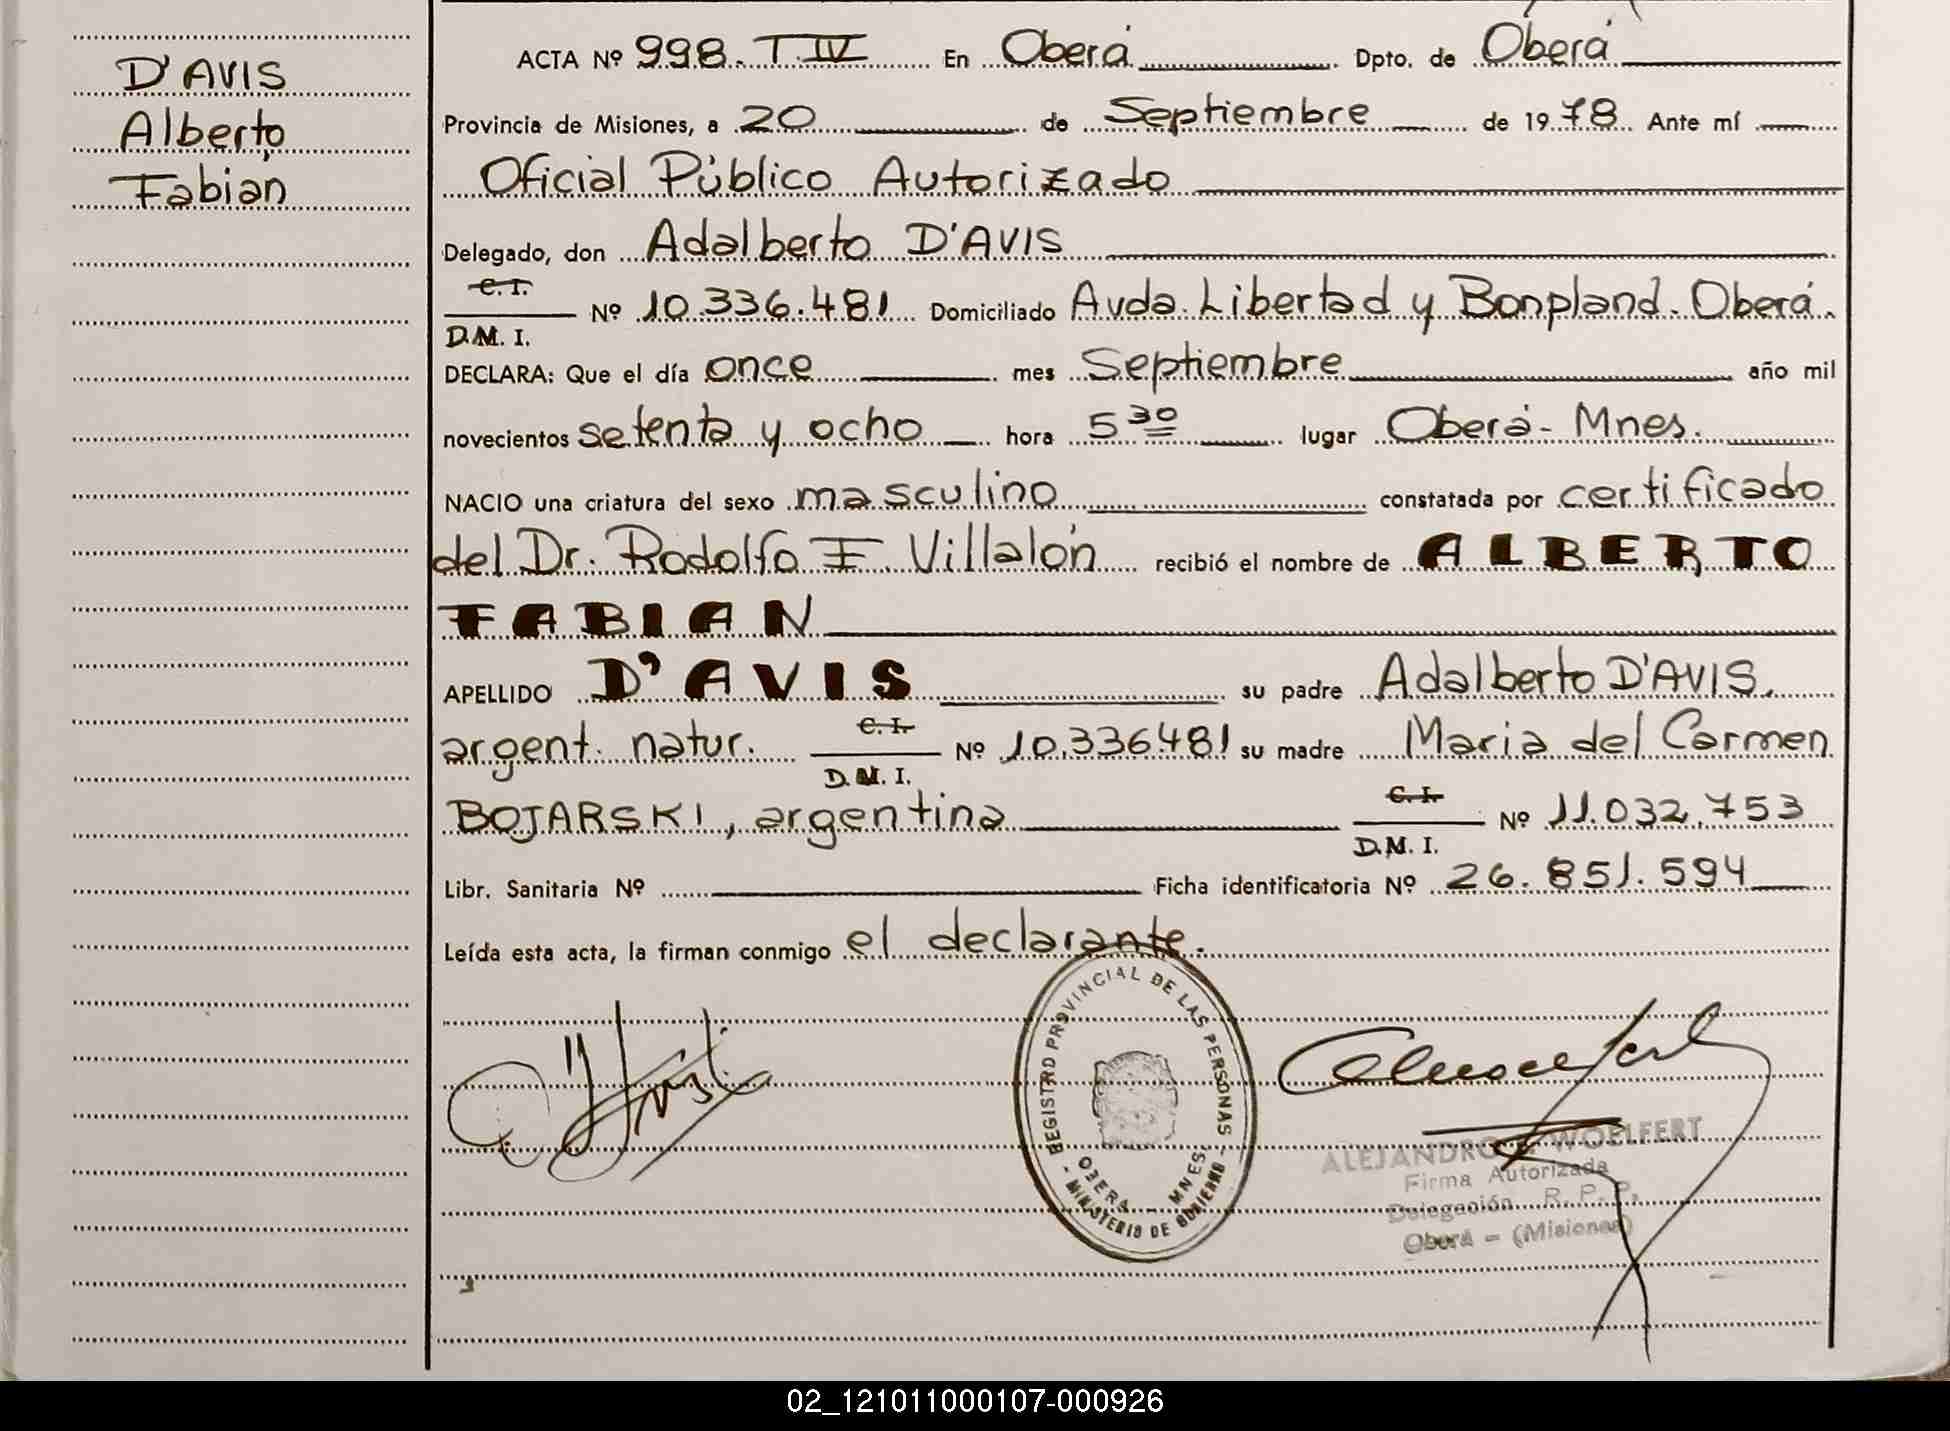 D'AVIS
Alberto
Fabian
ACTA Nº 998. T. IV En Oberá Dpto. de Oberá
Provincia de Misiones, a 20 de Septiembre de 1978. Ante mí
Oficial Público Autorizado
Delegado, don Adalberto D'AVIS
C. I.
D.M. I. Nº 10.336.481 Domiciliado Avda. Libertad y Bonpland. Oberá.
DECLARA: Que el día once mes Septiembre año mil
novecientos setenta y ocho hora 5 30 lugar Oberá - Mnes.
NACIO una criatura del sexo masculino constatada por certificado
del Dr. Rodolfo F. Villalón recibió el nombre de ALBERTO
FABIAN
APELLIDO D'AVIS su padre Adalberto D'AVIS.
argent. natur. C. I. D.M. I. Nº 10.336481 su madre Maria del Carmen
BOJARSKI, argentina C. I. D.M. I. Nº 11.032.753
Libr. Sanitaria Nº Ficha identificatoria Nº 26.851.594
Leída esta acta, la firman conmigo el declarante.
REGISTRO PROVINCIAL DE LAS PERSONAS
OBERA - MNES.
- MINISTERIO DE GOBIERNO -
ALEJANDRO WOELFERT
Firma Autorizada
Delegación R. P. P.
Oberá - (Misiones)
02_121011000107-000926